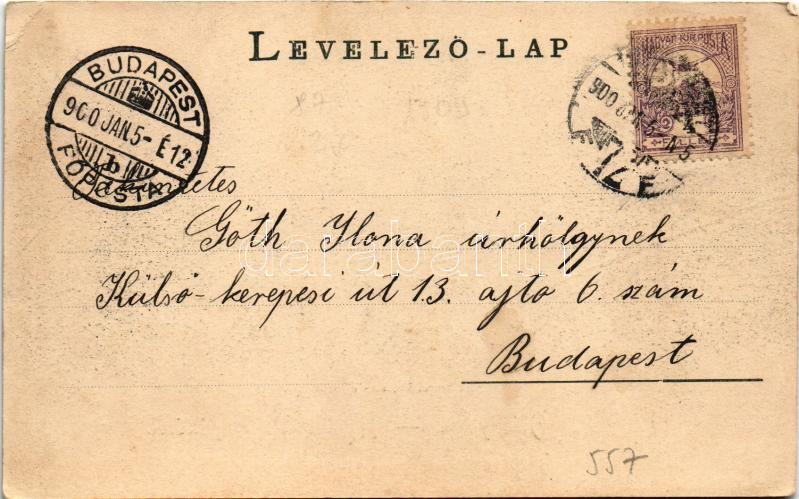 LEVELEZŐ-LAP
BUDAPEST
900 JAN 5 - É 12
b
FŐPOSTA
MAGYAR KIR. POSTA
900
Tekintetes
Góth Ilona úrhölgynek
Külső-kerepesi út 13. ajto 6. szám
Budapest
darabanth
557